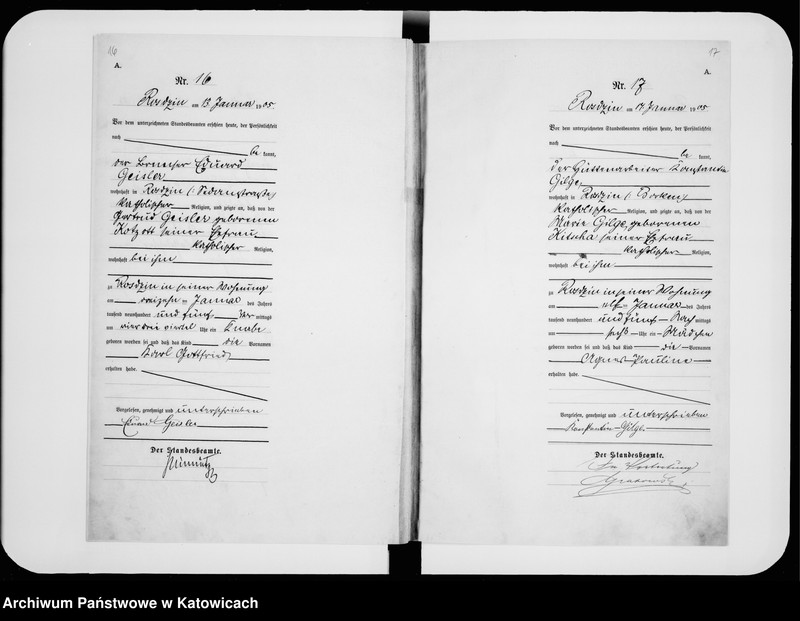 16
A.
Nr. 16
Rosdzin am 13 Januar 1905
Vor dem unterzeichneten Standesbeamten erschien heute, der Persönlichkeit
nach
be kannt,
der Eduard
Geisler
wohnhaft in Rosdzin
katholischer Religion, und zeigte an, daß von der
Gertrud Geisler geborenen
Kotzott seiner Ehefrau
katholischer Religion,
wohnhaft bei ihm
zu Rosdzin in seiner Wohnung
am dreizehn Januar des Jahres
tausend neunhundert und fünf Vor mittags
um vier drei viertel Uhr ein Knabe
geboren worden sei und daß das Kind die Vornamen
Karl Gottfried
erhalten habe.
Vorgelesen, genehmigt und unterschrieben
Eduard Geisler
Der Standesbeamte.
17
A.
Nr. 17
Rosdzin am 17 Januar 1905
Vor dem unterzeichneten Standesbeamten erschien heute, der Persönlichkeit
nach
be kannt,
der Hüttenarbeiter Konstantin
Gilge
wohnhaft in Rosdzin
katholischer Religion, und zeigte an, daß von der
Marie Gilge, geborenen
seiner Ehefrau
katholischer Religion,
wohnhaft bei ihm
zu Rosdzin in seiner Wohnung
am elf Januar des Jahres
tausend neunhundert und fünf Nach mittags
um sechs Uhr ein Mädchen
geboren worden sei und daß das Kind die Vornamen
Agnes Pauline
erhalten habe.
Vorgelesen, genehmigt und unterschrieben
Konstantin Gilge
Der Standesbeamte.
In Vertretung
Archiwum Państwowe w Katowicach